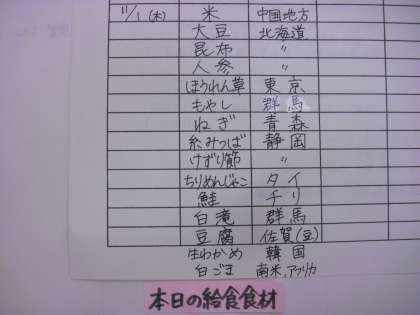 11/1(木) 米 中国地方
大豆 北海道
昆布 〃
人参 〃
ほうれん草 東京
もやし 群馬
ねぎ 青森
糸みつば 静岡
けずり節 〃
ちりめんじゃこ タイ
鮭 チリ
白滝 群馬
豆腐 佐賀(豆)
生わかめ 韓国
白ごま 南米、アフリカ
本日の給食食材